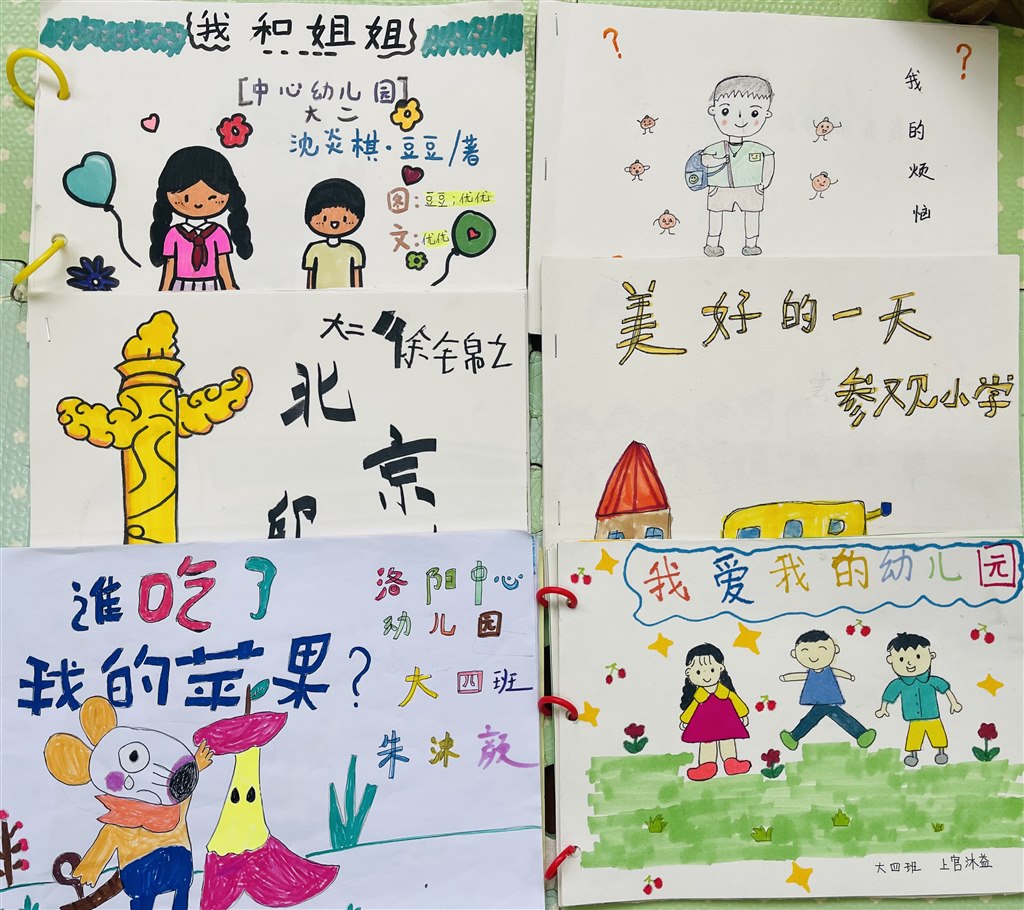 我和姐姐
[中心幼儿园]
大二
沈炎棋·豆豆/著
图:豆豆;优优
文:优优
?
?
我的烦恼
大二
北京
美好的一天
参观小学
谁吃了
我的苹果?
洛阳中心
幼儿园
大四班
朱沐颜
我爱我的幼儿园
大四班 上官沐益